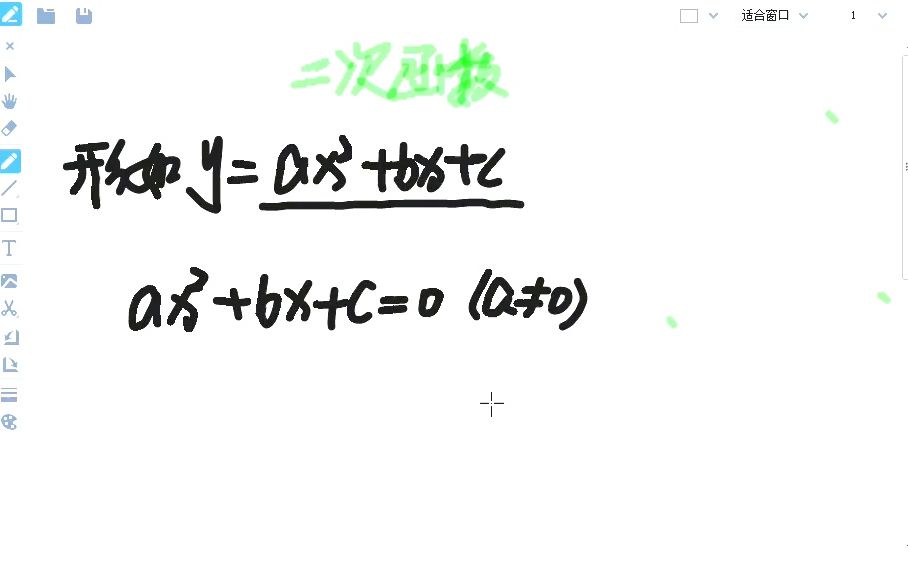 适合窗口 1
二次函数
形如 y=ax²+bx+c
ax²+bx+c=0 (a≠0)